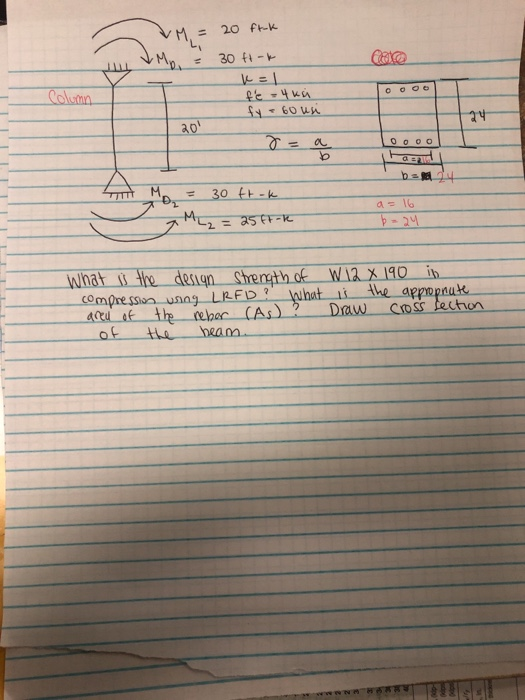 M L₁ = 20 ft-k
M D₁ = 30 ft-k
k = 1
Column
f'c = 4 ksi
fy = 60 ksi
20'
γ = a/b
24
a = 16
b = 24
M D₂ = 30 ft-k
M L₂ = 25 ft-k
a = 16
b = 24
What is the design strength of W12 x 190 in
compression using LRFD? What is the appropriate
area of the rebar (As)? Draw cross section
of the beam.